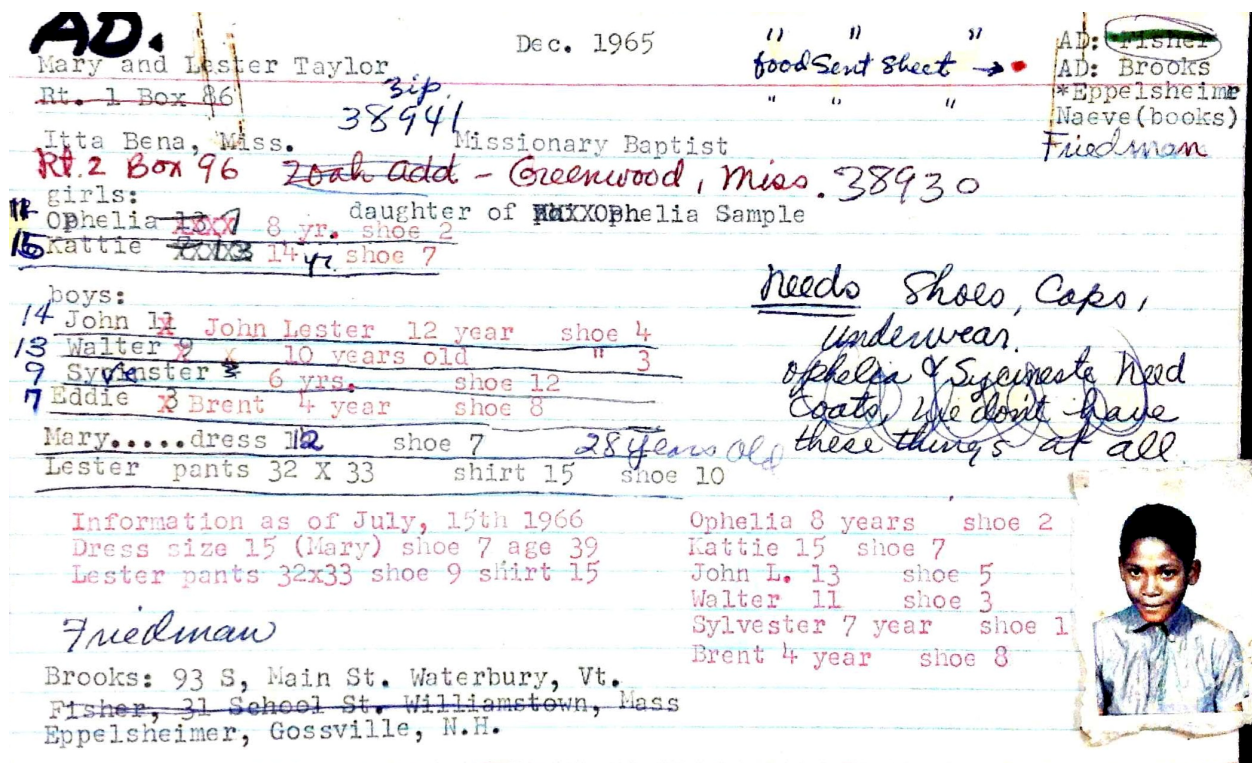 AD.
Dec. 1965
" " "
AD: Fisher
Mary and Lester Taylor
food Sent Sheet →
AD: Brooks
Rt. 1 Box 86
zip.
" " "
*Eppelsheimr
38941
Naeve(books)
Itta Bena, Miss.
Missionary Baptist
Friedman
Rt. 2 Box 96 Zoah add - Greenwood, Miss. 38930
girls:
Ophelia 8 yr. shoe 2
daughter of Ophelia Sample
15 Kattie 14 yr. shoe 7
boys:
14 John 11 x John Lester 12 year shoe 4
13 Walter 9 x x 10 years old " 3
9 Sylvenster 6 yrs. shoe 12
7 Eddie 3 x Brent 4 year shoe 8
Mary.....dress 12 shoe 7 28 years old
Lester pants 32 X 33 shirt 15 shoe 10
Needs Shoes, Caps,
underwear.
Ophelia & Sycineste need
Coats, we don't have
these things at all
Information as of July, 15th 1966
Dress size 15 (Mary) shoe 7 age 39
Lester pants 32x33 shoe 9 shirt 15
Ophelia 8 years shoe 2
Kattie 15 shoe 7
John L. 13 shoe 5
Walter 11 shoe 3
Sylvester 7 year shoe 1
Brent 4 year shoe 8
Friedman
Brooks: 93 S, Main St. Waterbury, Vt.
Fisher, 31 School St. Williamstown, Mass
Eppelsheimer, Gossville, N.H.